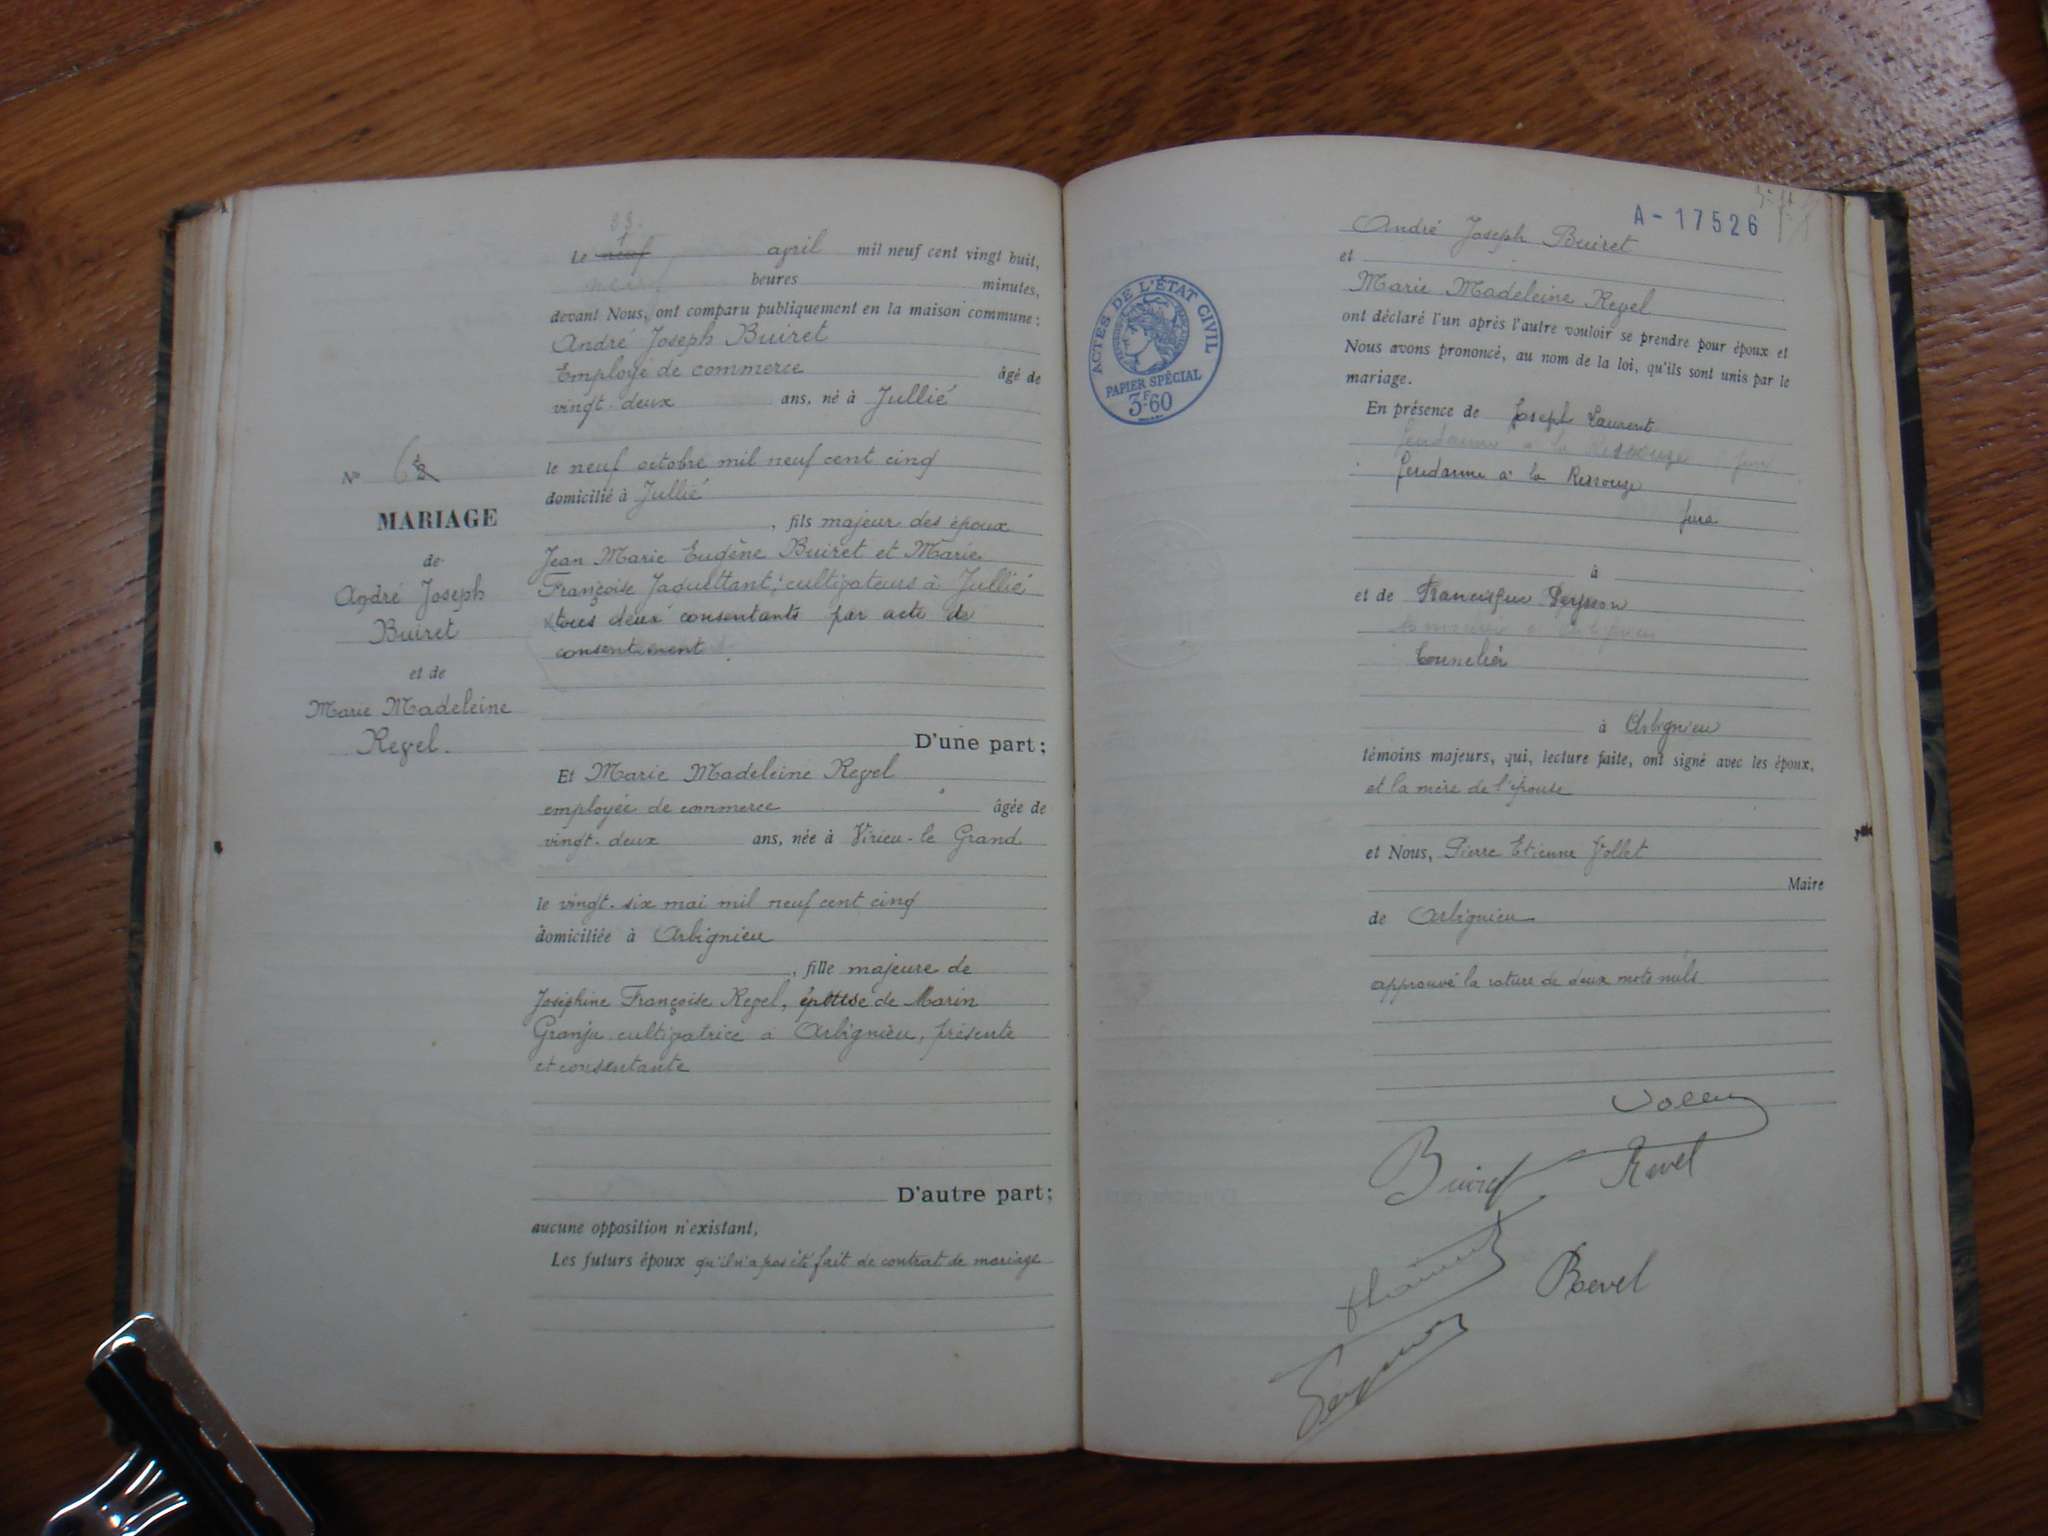 Le neuf avril mil neuf cent vingt huit,
heures minutes,
devant Nous, ont comparu publiquement en la maison commune :
André Joseph Buiret
Employé de commerce âgé de
vingt-deux ans, né à Jullié
le neuf octobre mil neuf cent cinq
domicilié à Jullié
, fils majeur des époux
Jean Marie Eugène Buiret et Marie
Françoise Jaquettant, cultivateurs à Jullié
tous deux consentants par acte de
consentement
D'une part ;
Nº 6
MARIAGE
de
André Joseph
Buiret
et de
Marie Madeleine
Revel.
Et Marie Madeleine Revel
employée de commerce âgée de
vingt-deux ans, née à Virieu-le Grand
le vingt-six mai mil neuf cent cinq
domiciliée à Arbignieu
, fille majeure de
Joséphine Françoise Revel, épouse de Marin
Granju cultivatrice à Arbignieu, présente
et consentante
D'autre part ;
aucune opposition n'existant,
Les futurs époux qu'il n'a pas été fait de contrat de mariage
A-17526
André Joseph Buiret
et
Marie Madeleine Revel
ont déclaré l'un après l'autre vouloir se prendre pour époux et
Nous avons prononcé, au nom de la loi, qu'ils sont unis par le
mariage.
En présence de Joseph Laurent
Gendarme à la Ressouze
Gendarme à la Ressouze
Jura
à
et de Francisque Peysson
Tonnelier
à Arbignieu
témoins majeurs, qui, lecture faite, ont signé avec les époux,
et la mère de l'épouse
et Nous, Pierre Etienne Vollet
Maire
de Arbignieu
approuvé la rature de deux mots nuls
Buiret Revel
Revel
ACTES DE L'ÉTAT CIVIL
PAPIER SPÉCIAL
3F60